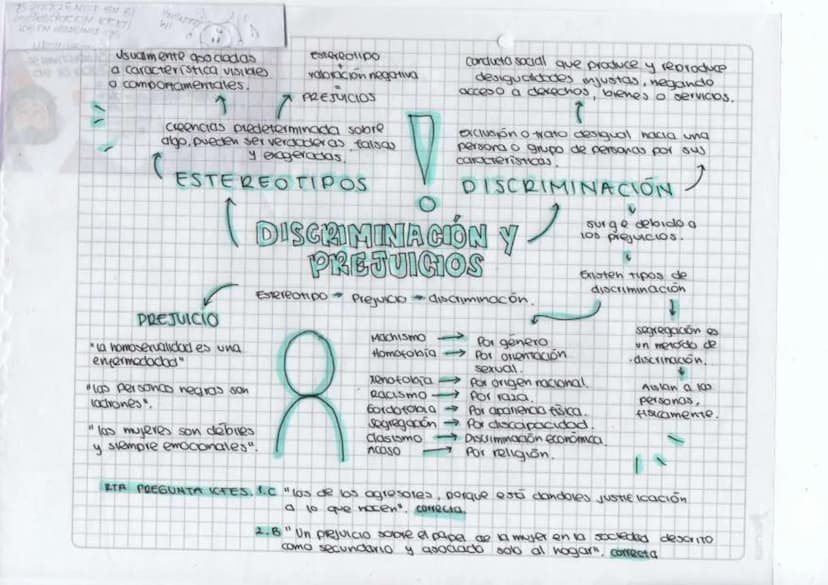 usualmente asociadas
a característica visibles
o comportamentales.
Estereotipo
+
valoración negativa
= PREJUICIOS
conducta social que produce y reproduce
desigualdades injustas, negando
acceso a derechos, bienes o servicios.
creencias predeterminada sobre
algo, pueden ser verdaderas, falsas
y exageradas.
exclusión o trato desigual hacia una
persona o grupo de personas por sus
características.
ESTEREOTIPOS
DISCRIMINACIÓN
surge debido a
los prejuicios.
DISCRIMINACIÓN Y
PREJUICIOS
Existen tipos de
discriminación
Estereotipo → Prejuicio → discriminación.
PREJUICIO
"la homosexualidad es una
enfermedad"
"las personas negras son
ladrones".
"las mujeres son débiles
y siempre emocionales".
Machismo → Por género
Homofobia → Por orientación
sexual.
Xenofobia → Por origen nacional.
Racismo → Por raza.
Gordofobia → Por apariencia física.
segregación → Por discapacidad.
Clasismo → Discriminación económica.
Acoso → Por religión.
segregación es
un metodo de
discriminación.
Aislan a las
personas,
físicamente.
RTA PREGUNTA ICFES. 1.C "Las de los agresores, porque está dandoles justificación
a lo que hacen". correcta
2.B "Un prejuicio sobre el papel de la mujer en la sociedad descrito
como secundario y asociado solo al hogar". correcta